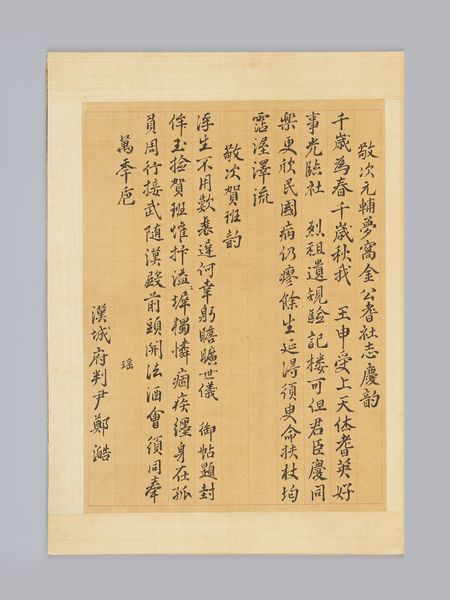 敬次元輔夢窩金公耆社志慶韵
千歲為春千歲秋我 王申受上天休耆英好
事光臨社 烈祖遺規驗記樓可但君臣慶同
樂更欣民國病仍瘳餘生延得須臾命扶杖均
霑渥澤流
敬次賀班韵
浮生不用歎衰遲何幸躬瞻曠世儀 御帖題封
侔玉撿賀班懽抃溢墀獨憐痼疾纏身在孤
負周行接武隨漢殿前頭開法酒會須同奉
萬年巵
瑤
漢城府判尹鄭澔